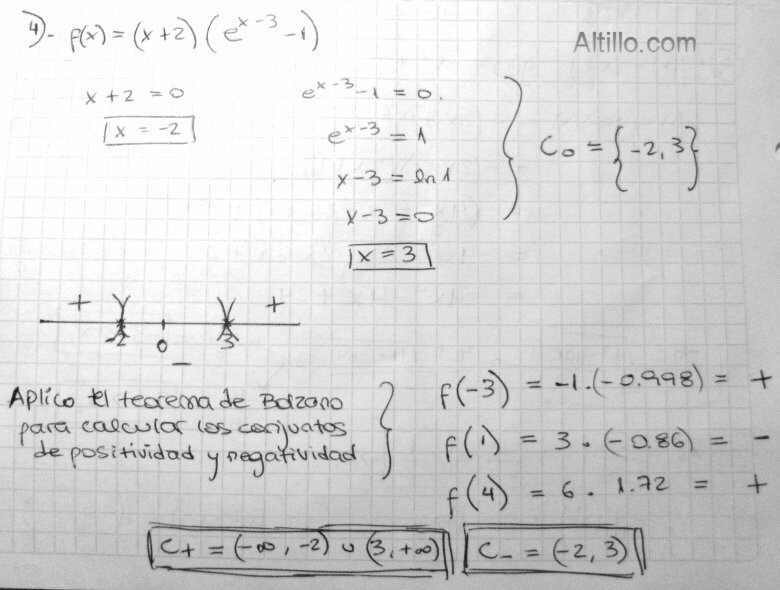 4)- f(x) = (x+2) (e^{x-3} - 1)
Altillo.com
x + 2 = 0
x = -2
e^{x-3} - 1 = 0.
e^{x-3} = 1
x - 3 = ln 1
x - 3 = 0
x = 3
C₀ = {-2, 3}
+ + 
-2 0 3
-
Aplico el teorema de Bolzano
para calcular los conjuntos
de positividad y negatividad
f(-3) = -1.(-0.998) = +
f(1) = 3 . (-0.86) = -
f(4) = 6 . 1.72 = +
C+ = (-∞, -2) ∪ (3, +∞)
C- = (-2, 3)